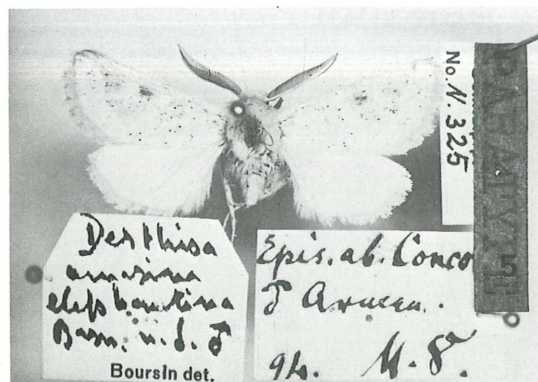 No. N. 325
PARATYPE
Desthisa
amasina
elephantina
Brsn. n. s. ♂
Boursin det.
Epis. ab. Conco
♂ Armen.
92.